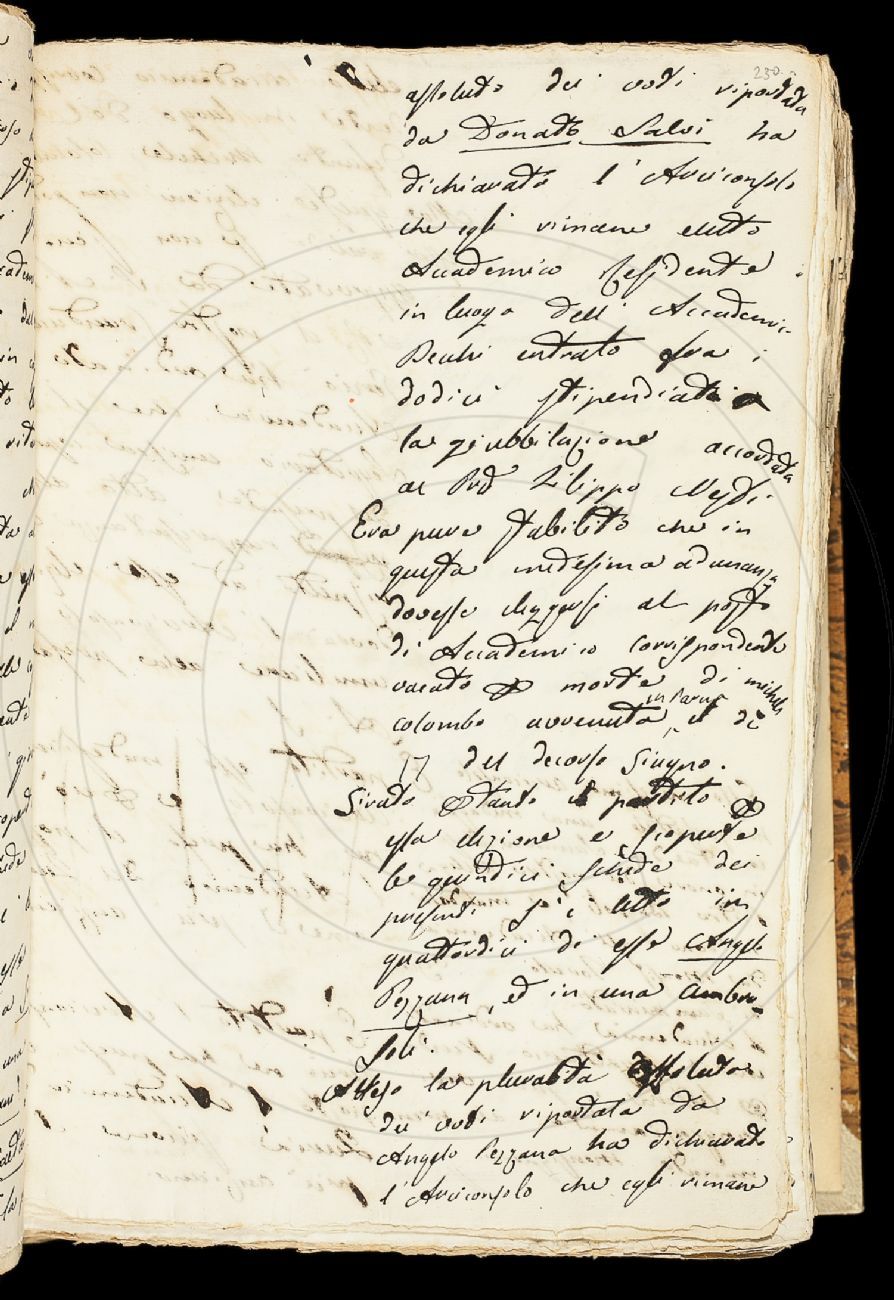 230.
assoluto dei voti riportata
da Donato Salvi ha
dichiarato l'Arciconsolo
che egli rimane eletto
Accademico Residente
in luogo dell'Accademi-
Becchi entrato fra i
dodici stipendiati
la giubbilazione accordata
al Prd Filippo Nesti
Era pure stabilito che in
questa medesima adunanza
dovesse eleggersi al posto
di Accademico corrispondente
vacato p morte di Michele
Colombo avvenuta in Parma il dì
17 del decorso Giugno.
Girato ptanto il partito p
essa elezione e scoperte
le quindici schede dei
presenti si è letto in
quattordici di esse Angelo
Pezzana, ed in una Ambro-
soli.
Atteso la pluralità assoluta
dei voti riportata da
Angelo Pezzana ha dichiarato
l'Arciconsolo che egli rimane